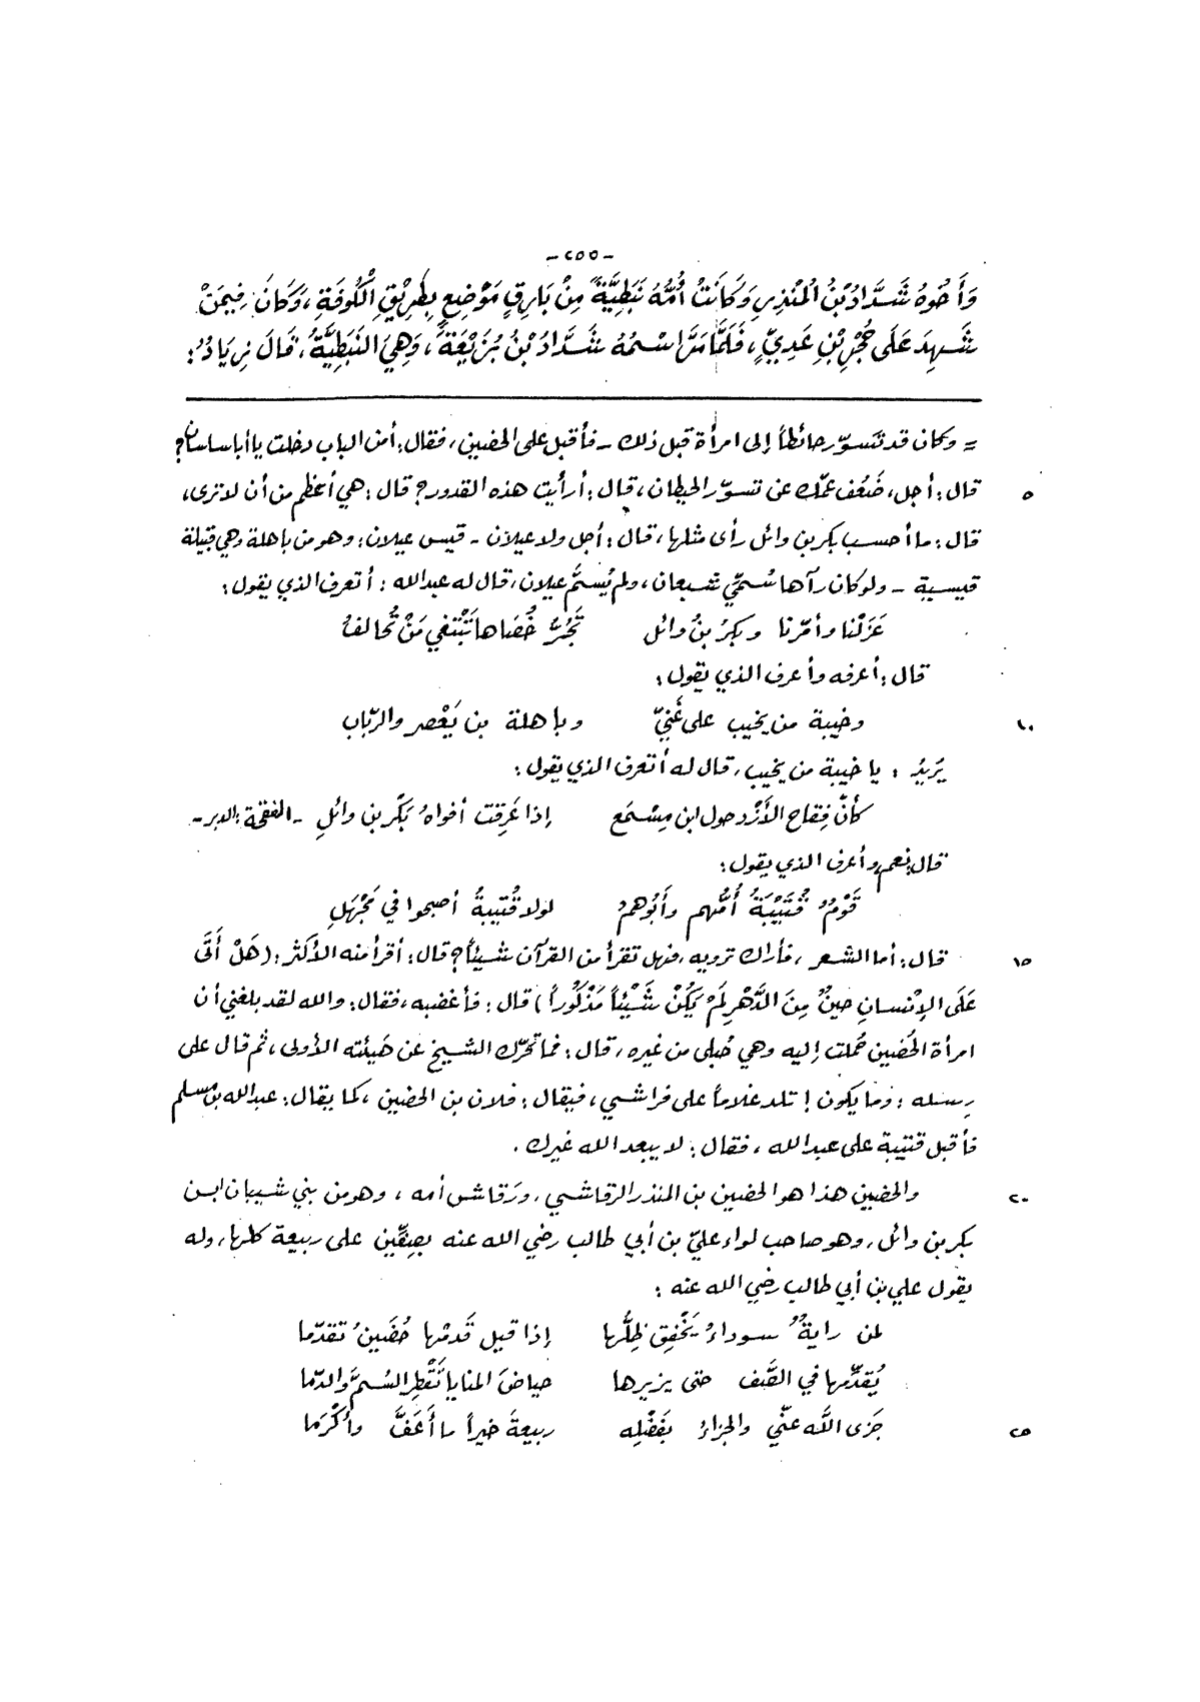 -٢٥٥-
وَأَخُوهُ شَدَّادُ بْنُ الْمُنْذِرِ وَكَانَتْ أُمُّهُ نَبَطِيَّةً مِنْ بَارِقٍ مَوْضِعٍ بِطَرِيْقِ الْكُوفَةِ، وَكَانَ فِيمَنْ
شَهِدَ عَلَى حُجْرِ بْنِ عَدِيٍّ، فَلَمَّا مَرَّ اسْمُهُ شَدَّادُ بْنُ بُزَيْعَةَ، وَهِيَ النَبَطِيَّةُ، قَالَ زِيَادُ:
= وكان قد تسوّر حائطاً إلى امرأة قبل ذلك - فأقبل على الحضين، فقال: أمن الباب دخلت يا أبا ساسان؟
قال: أجل، ضَعُف عمّك عن تسوّر الحيطان، قال: أرأيت هذه القدور؟ قال: هي أعظم من أن لا ترى، ٥
قال: ما أحسب بكر بن وائل رأى مثلها، قال: أجل ولا عيلان - قيس عيلان: وهو من باهلة وهي قبيلة
قيسية - ولو كان رآها سُمّي شبعان، ولم يُسَمَّ عيلان، قال له عبد الله: أتعرف الذي يقول:
عَزَلْنا وأمّرنا وبكرُ بنُ وائل تَجُرُّ خُصَاها تَبْتَغي مَنْ تُحالفُ
قال: أعرفه وأعرف الذي يقول:
وخيبة من يخيب على غَنِيّ وباهلة بن يَعْصر والرّباب ١٠
يَريدُ: يا خيبة من يخيب، قال له أتعرف الذي يقول:
كأنّ فِقاح الأَزْد حول ابن مِسْمَع إذا عَرِقت أفواهُ بَكْر بن وائلِ - الفقحة: الدبر -
قال: نعم، وأعرف الذي يقول:
قَوْمٌ قُتَيْبَةُ أُمُّهم وأَبُوهمُ لولا قُتيبةُ أصبحوا في مَجْهَلِ
قال: أما الشعر، فأراك ترويه، فهل تقرأ من القرآن شيئاً؟ قال: أقرأ منه الأكثر: (هَلْ أَتَى ١٥
عَلَى الإِنْسانِ حينٌ مِنَ الدَّهْرِ لَمْ يَكُنْ شَيْئاً مَذْكُوراً) قال: فأغضبه، فقال: والله لقد بلغني أن
امرأة الحُضين حُملت إليه وهي حُبلى من غيره، قال: فما تحرّك الشيخ عن هَيئته الأولى، ثم قال على
رِسله: وما يكون! تلد غلاماً على فراشي، فيقال: فلان بن الحضين، كما يقال: عبد الله بن مسلم
فأقبل قتيبة على عبد الله، فقال: لا يبعد الله غيرك.
والحضين هذا هو الحضين بن المنذر الرقاشي، ورَقاش أمه، وهو من بني شيبان ابن ٢٠
بكر بن وائل، وهو صاحب لواء عليّ بن أبي طالب رضي الله عنه بصِفّين على ربيعة كلها، وله
يقول علي بن أبي طالب رضي الله عنه:
لمن رايةٌ سوداءُ يَخْفِق ظِلُّها إذا قيل قَدمْها حُضَينُ تقدّما
يُقدِّمها في الصَّف حتى يزيرها حياضَ المنايا تَقْطِر السُمَّ والدّما
جَزَى اللَّه عنّي والجزاءُ بفَضْلِه ربيعةَ خيراً ما أَعَفَّ وأكْرَمَا ٢٥